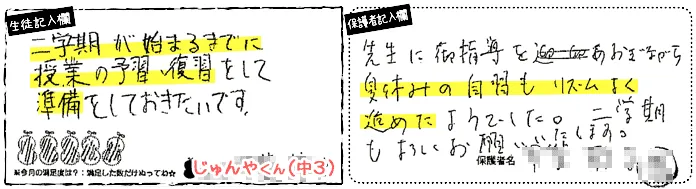 生徒記入欄
二学期が始まるまでに
授業の予習、復習をして
準備をしておきたいです。
※今月の満足度は?:満足した数だけぬってね☆
じゅんやくん(中3)
保護者記入欄
先生に御指導をあおぎながら
夏休みの自習もリズムよく
進めたようでした。二学期
もよろしくお願い致します。
保護者名